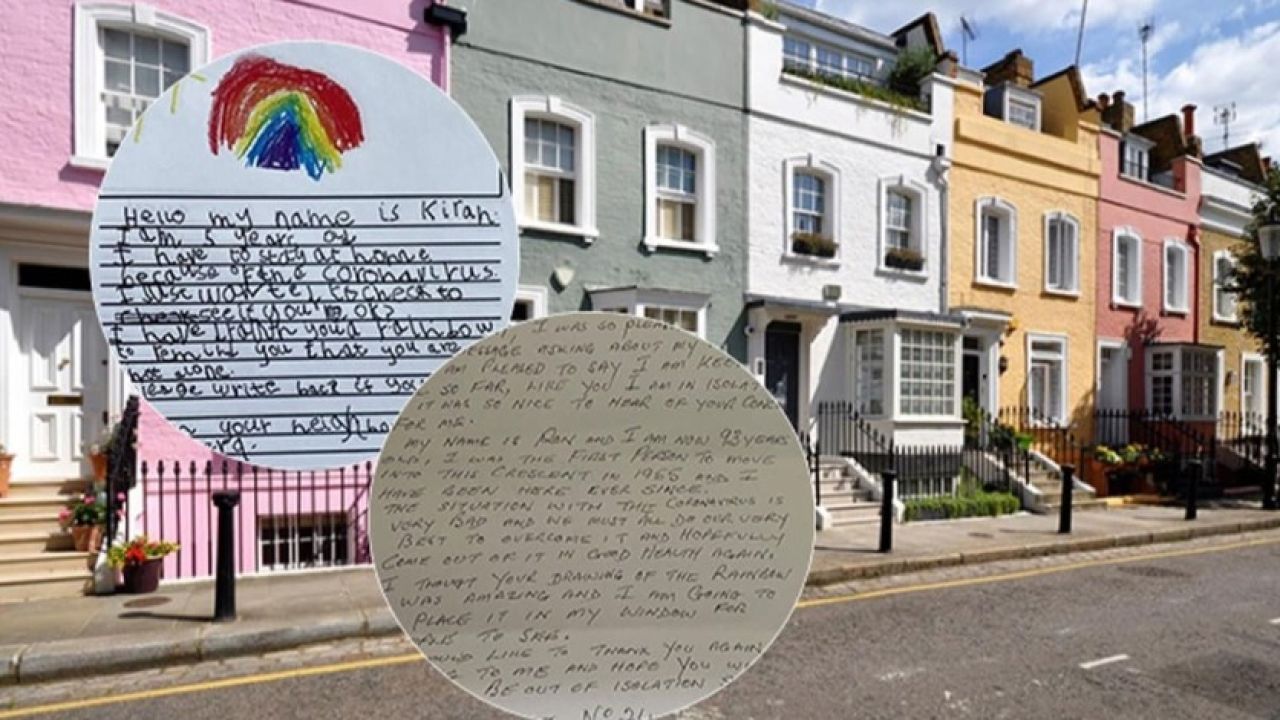 Hello my name is Kirah.
I am 5 years old
I have to stay at home
because of the coronavirus.
I wanted to check to
see if you're ok?
I have drawn you a rainbow
to remind you that you are
not alone.
write back if you
your
I WAS SO
ASKING ABOUT MY
AM PLEASED TO SAY I AM
SO FAR, LIKE YOU I AM IN
IT WAS SO NICE TO HEAR OF YOUR
FOR ME.
MY NAME IS RON AND I AM NOW 93 YEARS
OLD, I WAS THE FIRST PERSON TO MOVE
INTO THIS CRESCENT IN 1955 AND I
HAVE BEEN HERE EVER SINCE.
THE SITUATION WITH THIS CORONAVIRUS IS
VERY BAD AND WE MUST ALL DO OUR VERY
BEST TO OVERCOME IT AND HOPEFULLY
COME OUT OF IT IN GOOD HEALTH AGAIN.
I THOUGHT YOUR DRAWING OF THE RAINBOW
WAS AMAZING AND I AM GOING TO
PLACE IT IN MY WINDOW FOR
TO SEE.
LIKE TO THANK YOU AGAIN
TO ME AND HOPE YOU
BE OUT OF ISOLATION